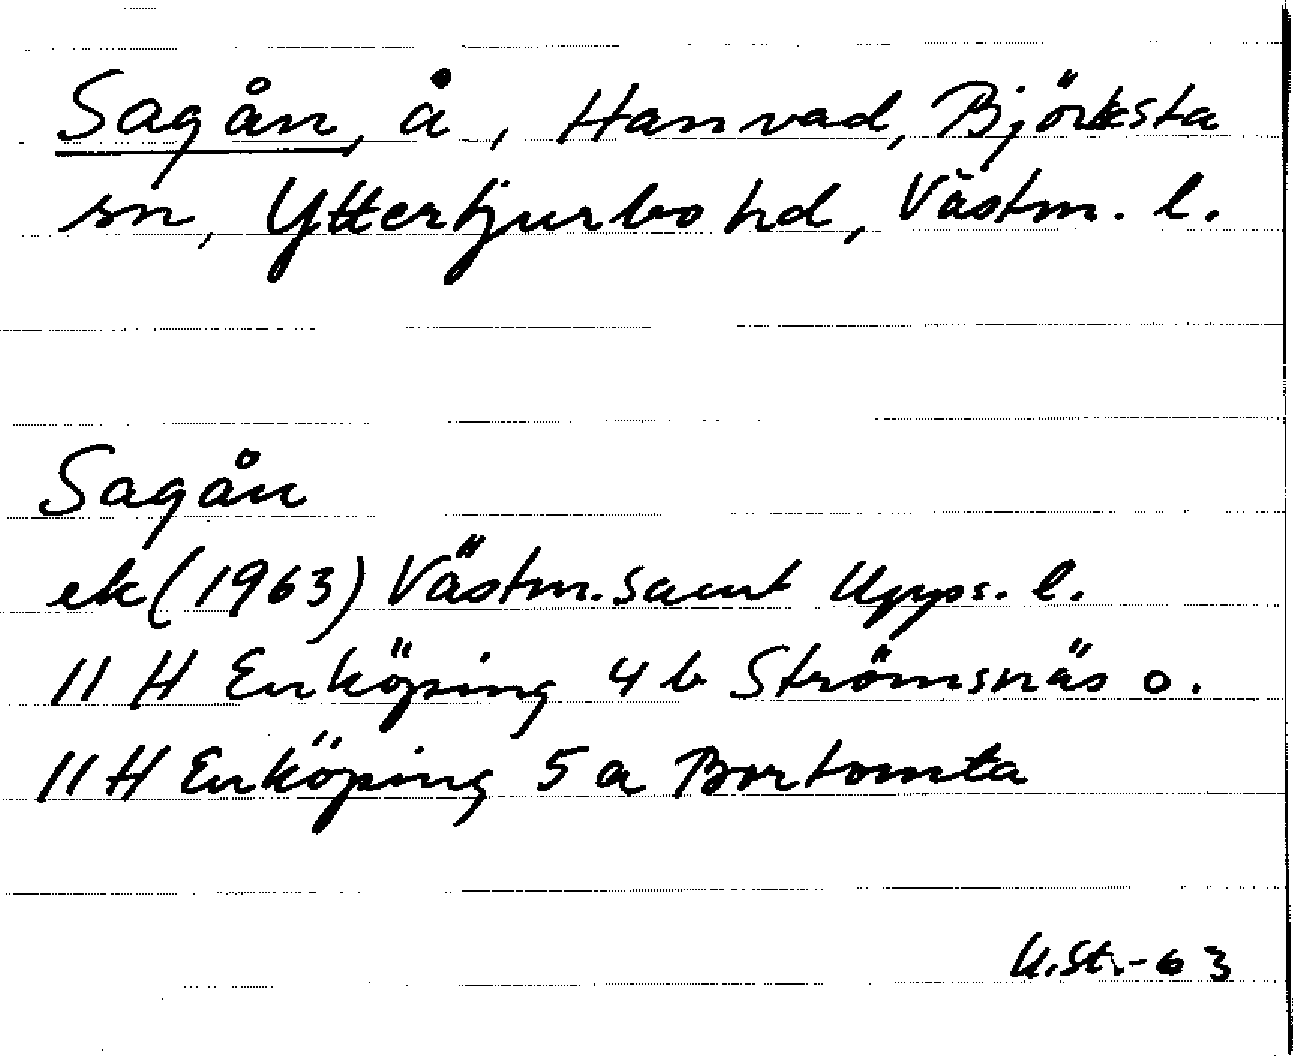 Sagån, å, Hanvad, Björksta
sn, Yttertjurbo hd, Västm. l.
Sagån
ek (1963) Västm. samt Upps. l.
11 H Enköping 4 b Strömsnäs o.
11 H Enköping 5 a Bortomta
U.St.-63